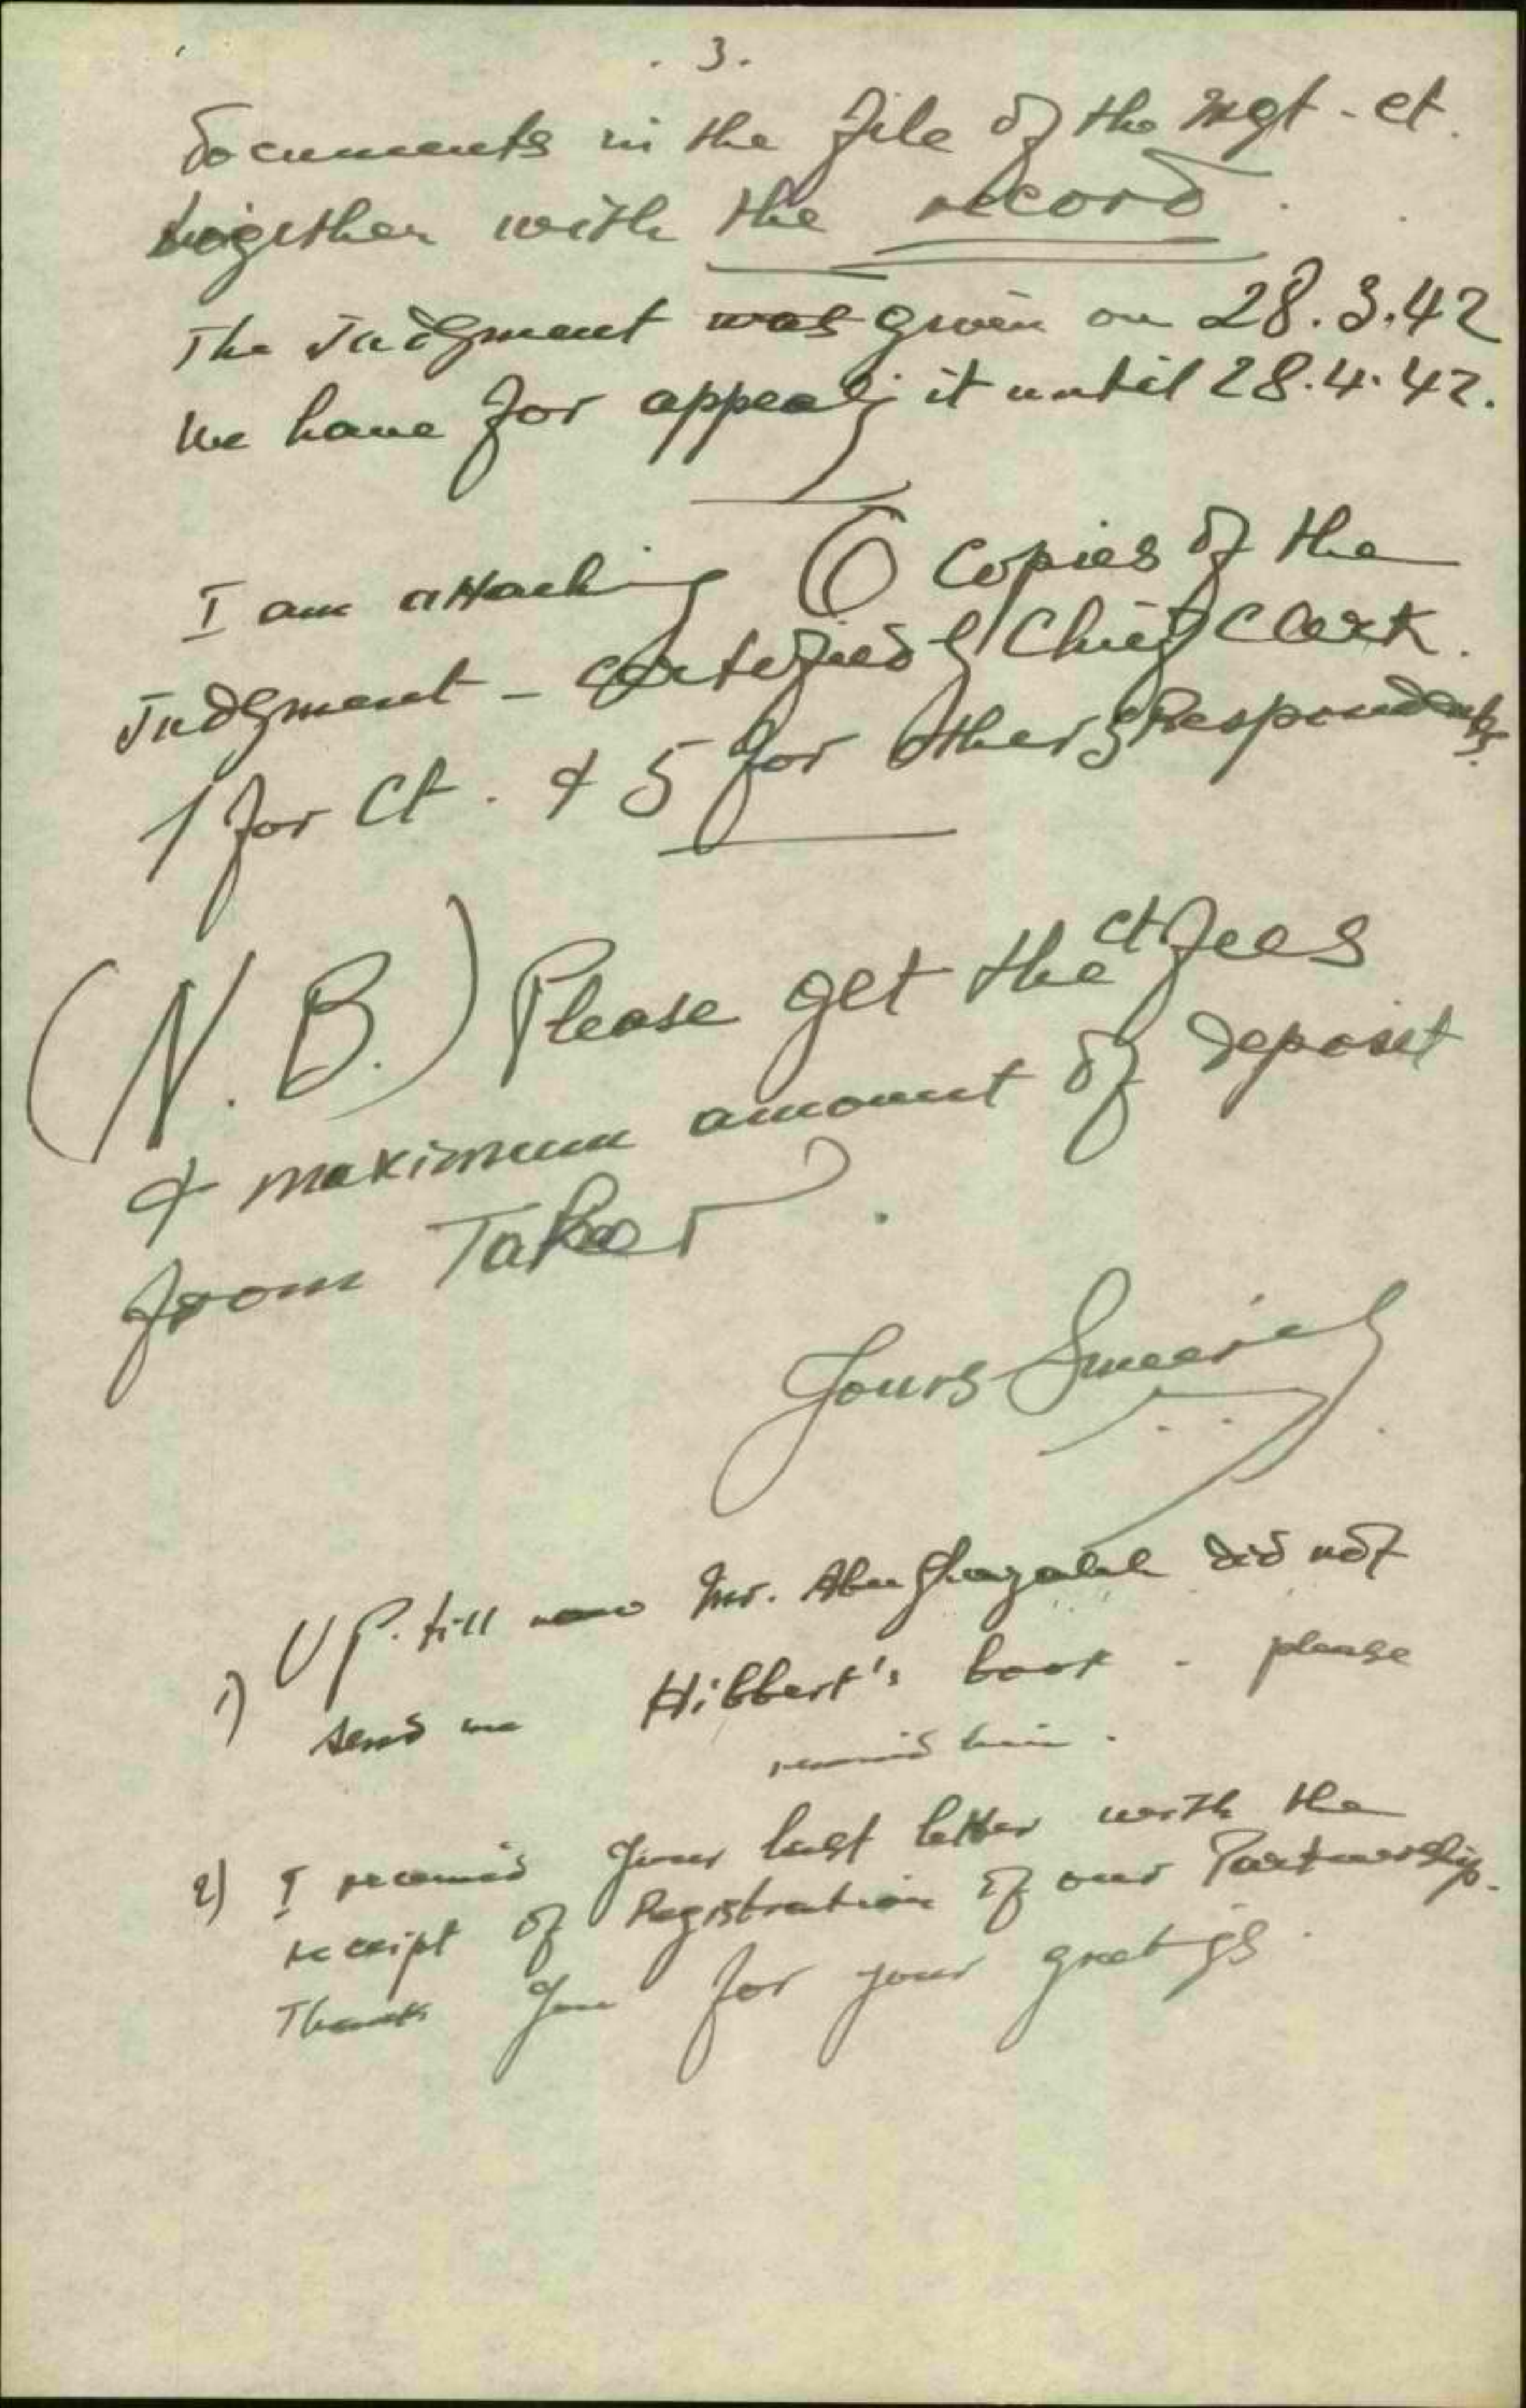 . 3 .
documents in the file of the Mgt. ct.
together with the record.
The Judgment was given on 28.3.42
We have for appealg it until 28.4.42.
I am attaching 6 copies of the
Judgment - certified by Chief Clerk.
1 for Ct. & 5 for other 5 Respondents.
(N. B.) Please get the ct. fees
& maximum amount of deposit
from Taher.
Yours Sincerely
1) UP. till now Mr. Abu Ghazaleh did not
send me Hibbert's book - please
remind him.
2) I received your last letter with the
receipt of Registration of our Partnership.
Thank you for your greetigs.